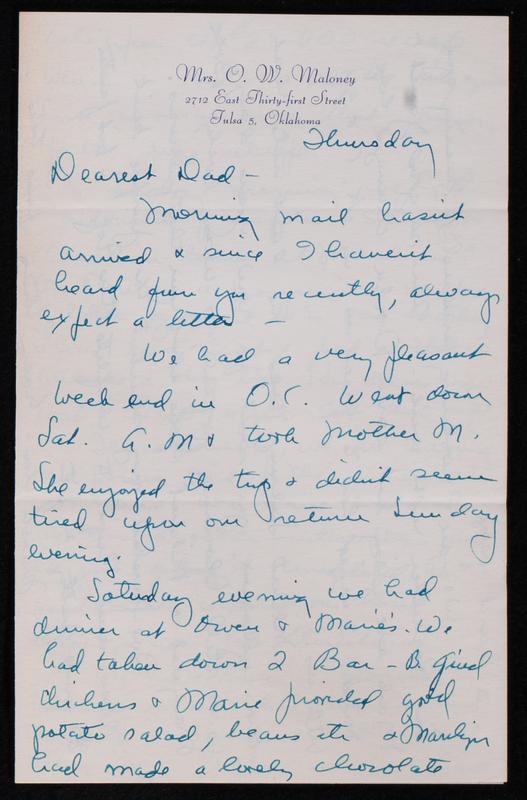 Mrs. O. W. Maloney
2712 East Thirty-first Street
Tulsa 5, Oklahoma
Thursday
Dearest Dad -
Morning mail hasn't
arrived & since I haven't
heard from you recently, always
expect a letter -
We had a very pleasant
week end in O.C. Went down
Sat. A.M & took Mother M.
She enjoyed the trip & didn't seem
tired upon our return Sunday
evening.
Saturday evening we had
dinner at Owen & Marie's. We
had taken down 2 Bar-B-Qued
chickens & Marie provided good
potato salad, beans etc & Marilyn
had made a lovely chocolate